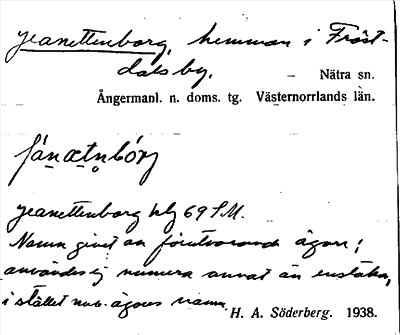 Jeanettenborg, hemman i Fröst-
dals by.
– Nätra sn.
Ångermanl. n. doms. tg. Västernorrlands län.
Jeanettenborg hlg 69 S.M.
Namn givet av förutvarande ägare;
användes ej numera annat än enstaka,
i stället nuv. ägares namn.
H. A. Söderberg. 1938.